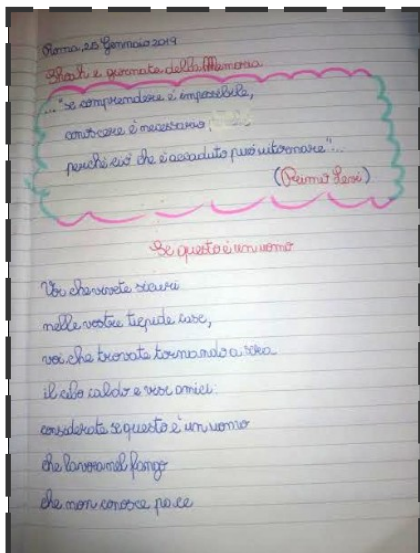 Roma, 25 Gennaio 2019
Shoah e giornata della Memoria
..."se comprendere è impossibile,
conoscere è necessario
perché ciò che è accaduto può ritornare"...
(Primo Levi)
Se questo è un uomo
Voi che vivete sicuri
nelle vostre tiepide case,
voi che trovate tornando a sera
il cibo caldo e visi amici:
considerate se questo è un uomo
che lavora nel fango
che non conosce pace